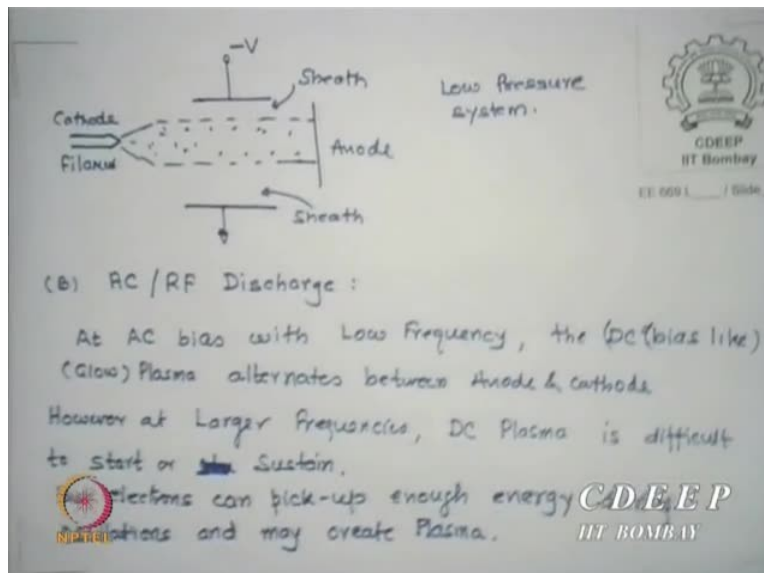 -V
Sheath
Low Pressure
system.
Cathode
Anode
Sheath
CDEEP
IIT Bombay
EE 669 L / Slide
(B) AC/RF Discharge :
At AC bias with Low Frequency, the (DC bias like)
(Glow) Plasma alternates between Anode & Cathode
However at Larger Frequencies, DC Plasma is difficult
to start or Sustain.
electrons can pick-up enough energy
and may create Plasma.
CDEEP
IIT BOMBAY
NPTEL